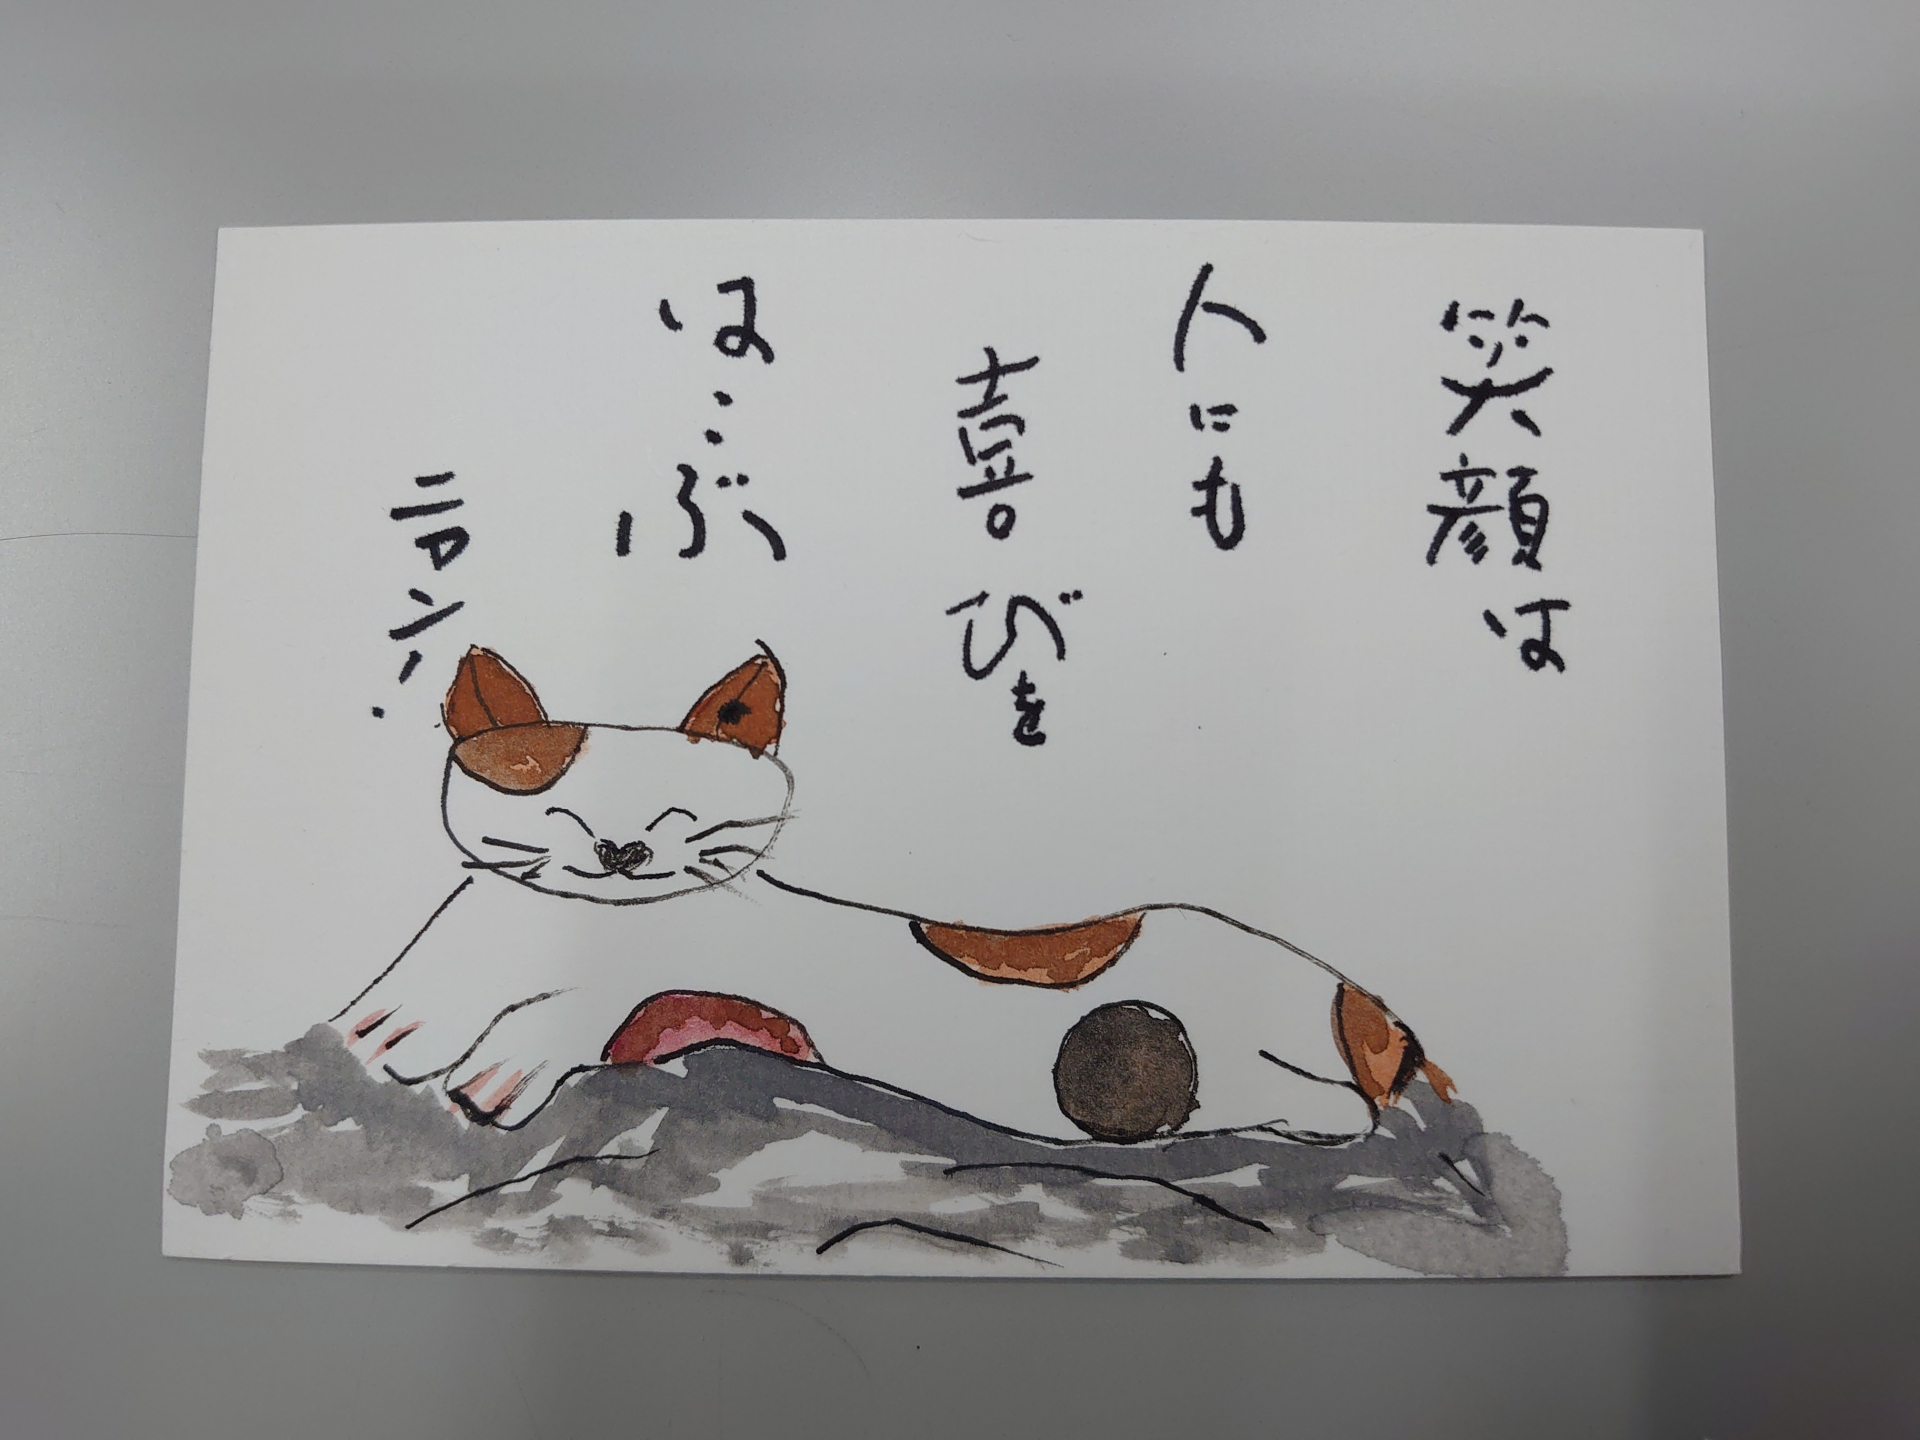 笑顔は
人にも
喜びを
はこぶ